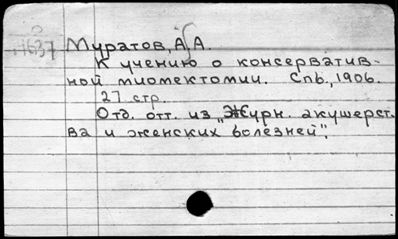 11637
Муратов, А. А.
К учению о консерватив-
ной миомектомии. Спб., 1906.
27 стр.
Отд. отт. из „Журн. акушерст-
ва и женских болезней".